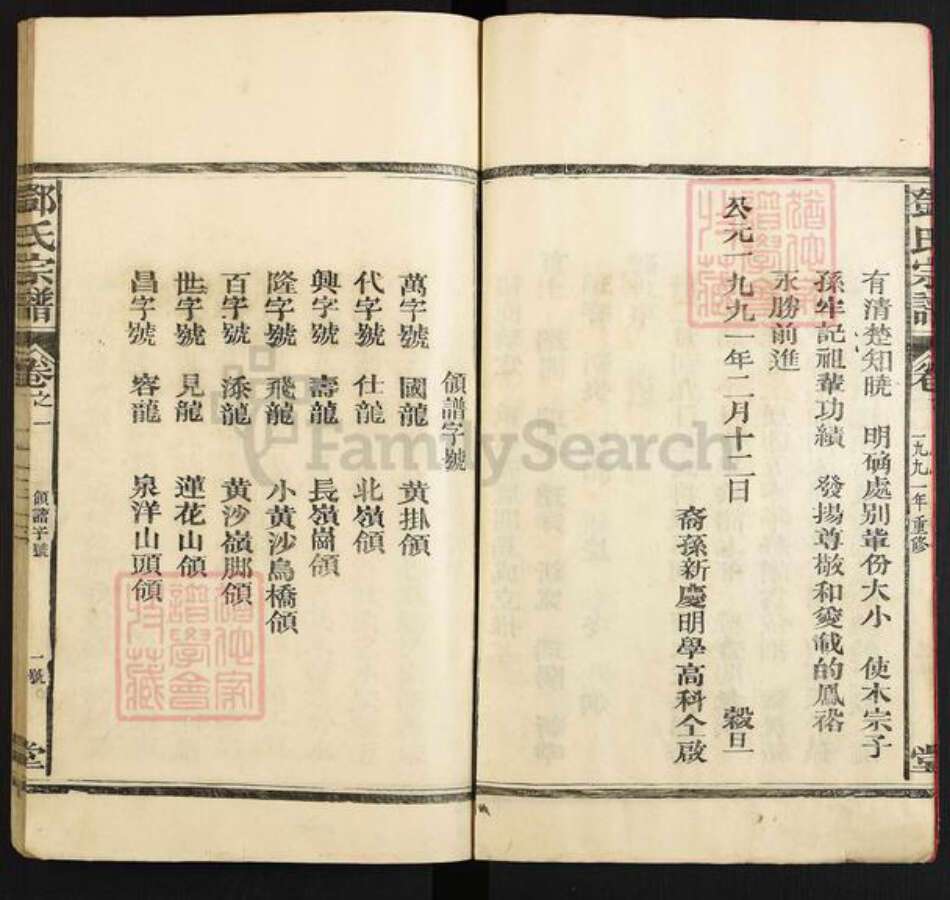 鄧氏宗譜
卷
一九九一年重修
堂
有清楚知曉 明确處别輩份大小 使本宗子
孫牢記祖輩功績 發揚尊敬和愛戴的風格
永勝前進
公元一九九一年二月十二日 穀旦
裔孫新慶明學高科仝啟
領譜字號
萬字號 國龍 黄掛領
代字號 仕龍 北嶺領
興字號 壽龍 長嶺崗領
隆字號 飛龍 小黄沙鳥橋領
百字號 添龍 黄沙嶺脚領
世字號 見龍 蓮花山領
昌字號 容龍 泉洋山頭領
鄧氏宗譜
卷之一
領譜字號
一號
堂
猶他家
譜學會
特藏
猶他家
譜學會
特藏
FamilySearch